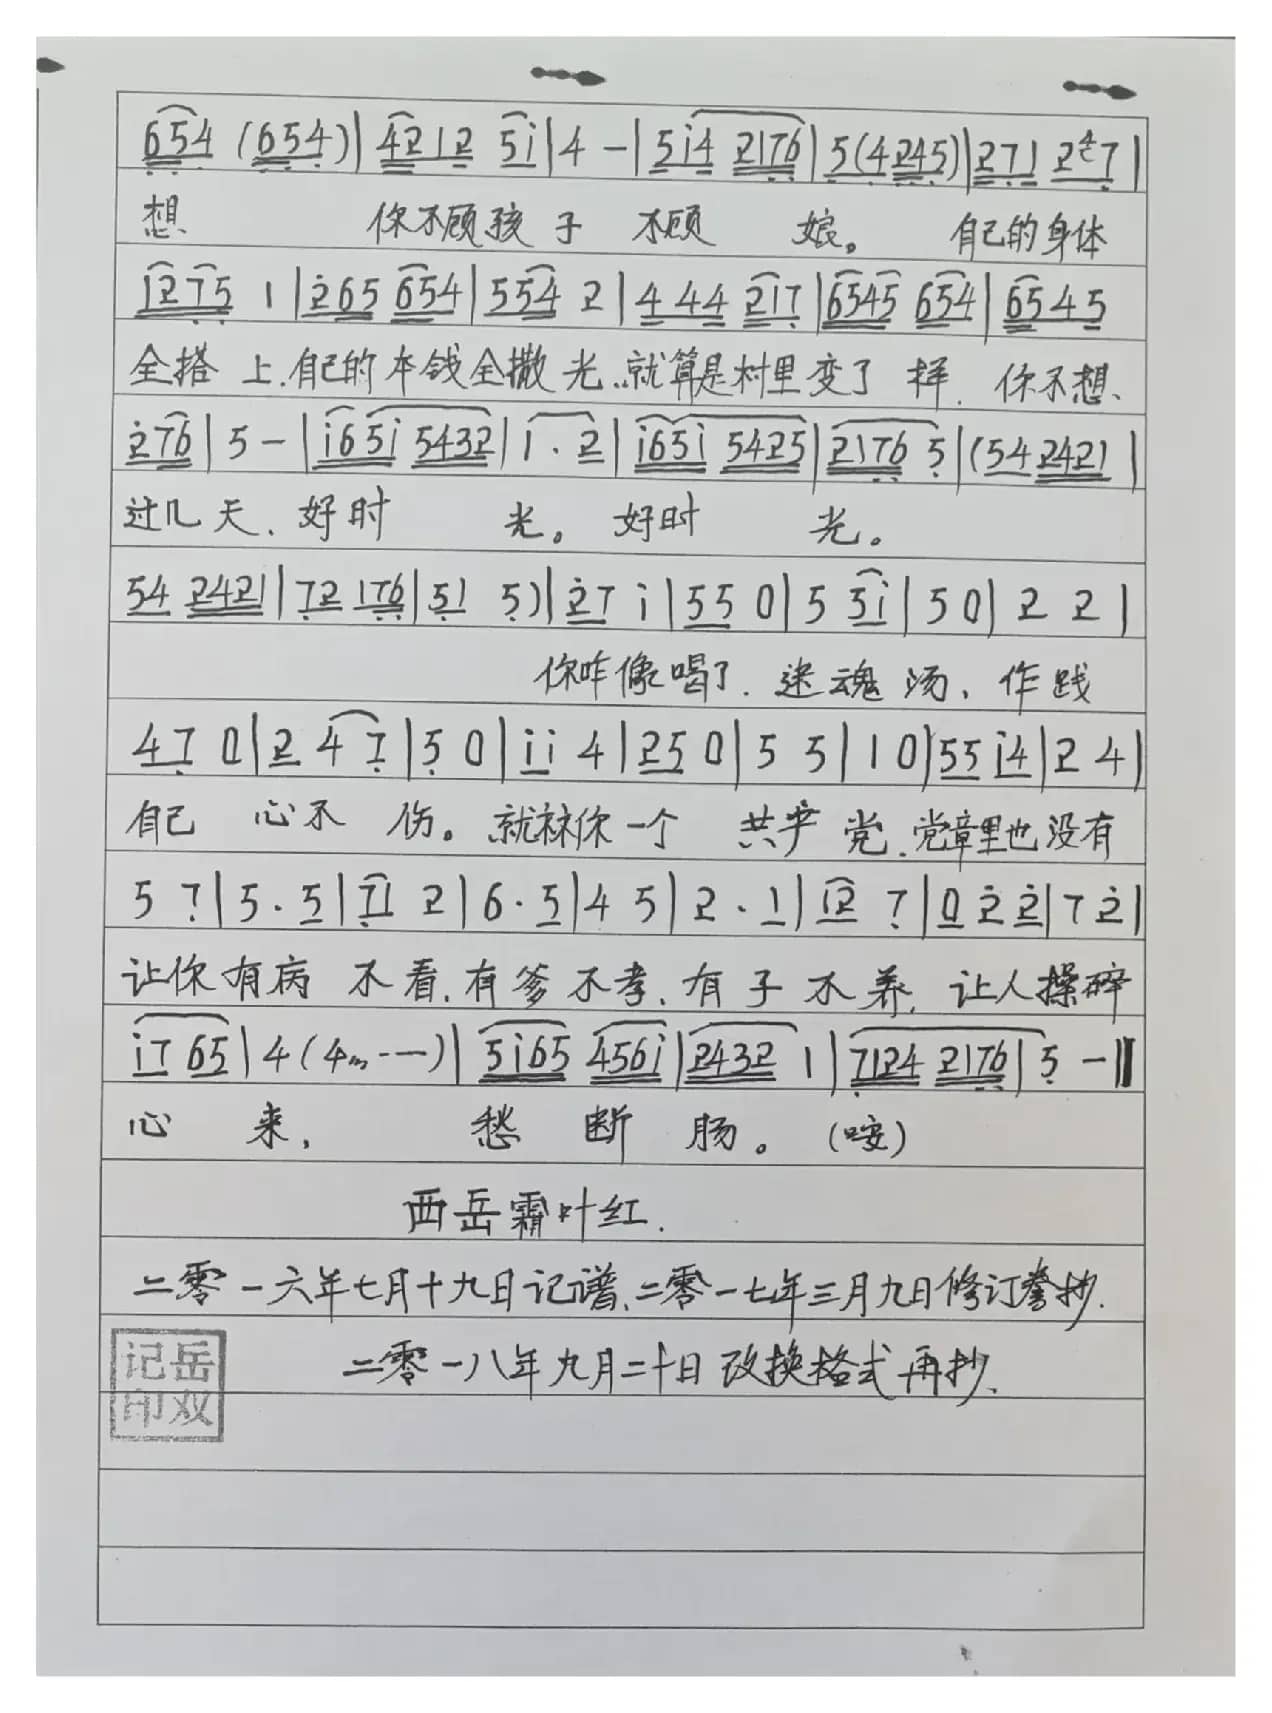 654 (654)| 4212 5i|4 -|5i4 2176|5(4245)|271 2⁴7|
想 你不顾孩子 不顾 娘。 自己的身体
1275 1|265 654|554 2|4 44 217|6545 654|6545
全搭 上.自己的本钱全撒光..就算是村里变了 样. 你不想、
276|5 -|i65i 5432|i . 2|i65i 5425|2176 5|(54 2421|
过几天、好时 光。好时 光。
54 2421|72 176|51 5)|27 i|55 0|5 5i|50|2 2|
你咋像喝了. 迷魂 汤、作践
47 0|2 47|5 0|ii 4|25 0|5 5|1 0|55 i4|2 4|
自己 心不 伤。就你一个 共产 党.党章里也没有
5 7|5 . 5|71 2|6 . 5|4 5|2 . 1|12 7|0 2 2|7 2|
让你有病 不看.有爹不孝.有子不养. 让人操碎
i7 65|4(4 - -)|5i65 456i|2432 1|7124 2176|5 -‖
心 来, 愁 断 肠。(哎)
西岳霜叶红.
二零一六年七月十九日记谱、二零一七年三月九日修订誊抄.
二零一八年九月二十日改换格式再抄.
记岳
印双